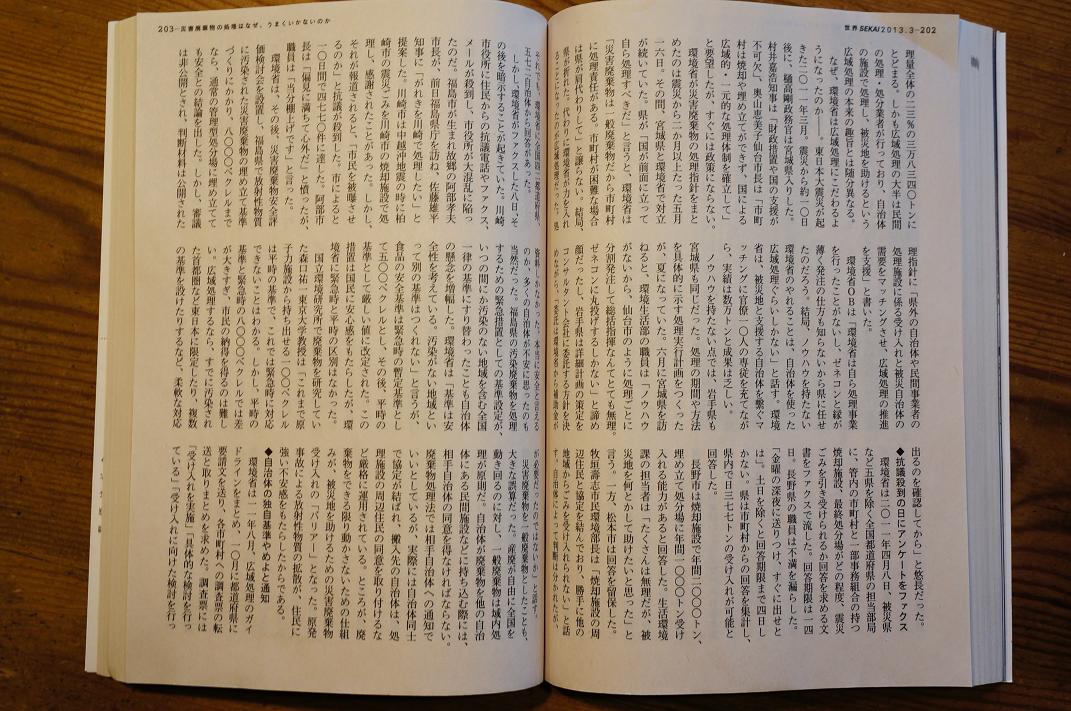 世界 SEKAI 2013.3—202
理量全体の二三％の三万八三四〇トンに
とどまる。しかも広域処理の大半は民間
の処理・処分業者が行っており、自治体
の施設で処理し、被災地を助けるという
広域処理の本来の趣旨とは随分異なる。
なぜ、環境省は広域処理にこだわるよ
うになったのか――。東日本大震災が起
きた二〇一一年三月。震災から約一〇日
後に、樋高剛政務官は宮城県入りした。
村井嘉浩知事は「財政措置や国の支援が
不可欠」、奥山恵美子仙台市長は「市町
村は焼却や埋め立てができず、国による
広域的・一元的な処理体制を確立して」
と要望したが、すぐには政策にならない。
環境省が災害廃棄物の処理指針をまと
めたのは震災から二か月以上たった五月
一六日。その間、宮城県と環境省で対立
が続いていた。県が「国が前面に立って
自ら処理すべきだ」と言うと、環境省は
「災害廃棄物は一般廃棄物だから市町村
に処理責任がある。市町村が困難な場合
は県が肩代わりして」と譲らない。結局、
県が折れた。代わりに環境省が力を入れ
ることになったのが広域処理だった。処
理指針に「県外の自治体や民間事業者の
処理施設に係る受け入れと被災自治体の
需要をマッチングさせ、広域処理の推進
を支援」と書いた。
環境省ＯＢは「環境省は自ら処理事業
を行ったことがないし、ゼネコンと縁が
薄く発注の仕方も知らないから県に任せ
たのだろう。結局、ノウハウを持たない
環境省のやれることは、自治体を使った
広域処理ぐらいしかない」と話す。環境
省は、被災地と支援する自治体を繋ぐマ
ッチングに官僚一二〇人の専従を充てなが
ら、実績は数万トンと成果は乏しい。
ノウハウを持たない点では、岩手県も
宮城県も同じだった。処理の期間や方法
を具体的に示す処理実行計画をつくった
が、夏になっていた。六月に宮城県を訪
ねると、環境生活部の職員は「ノウハウ
がないから、仙台市のように処理ごとに
分割発注して総括指揮なんてとても無理。
ゼネコンに丸投げするしかない」と諦め
顔だったし、岩手県は詳細計画の策定を
コンサルタント会社に委託する方針を決
めながら、「委託は環境省から補助金が
出るのを確認してから」と悠長だった。
◆抗議殺到の日にアンケートをファクス
環境省は二〇一一年四月八日、被災県
など五県を除く全国都道府県の担当部局
に、管内の市町村と一部事務組合の持つ
焼却施設、最終処分場がどの程度、震災
ごみを引き受けられるか回答を求める文
書をファクスで流した。回答期限は一四
日。長野県の職員は不満を漏らした。
「金曜の深夜に送りつけ、すぐに出せと
は」。土日を除くと回答期限まで四日し
かない。県は市町村からの回答を集計し、
県内で日三七七トンの受け入れが可能と
回答した。
長野市は焼却施設で年間二〇〇〇トン、
埋め立て処分場に年間一〇〇〇トン受け
入れる能力があると回答した。生活環境
課の担当者は「たくさんは無理だが、被
災地を何とかして助けたいと思った」と
言う。一方、松本市は回答を留保した。
牧垣壽志市民環境部長は「焼却施設の周
辺住民と協定を結んでおり、勝手に他の
地域からごみを受け入れられない」と話
す。自治体によって判断は分かれたが、
203—災害廃棄物の処理はなぜ、うまくいかないのか
それでも、環境省に全国四二都道府県、
五七二自治体から回答があった。
しかし、環境省がファクスした八日、そ
の後を暗示することが起きていた。川崎
市役所に住民からの抗議電話やファクス、
メールが殺到し、市役所が大混乱に陥っ
たのだ。福島市が生まれ故郷の阿部孝夫
市長が、前日福島県庁を訪ね、佐藤雄平
知事に「がれきを川崎で処理したい」と
提案した。川崎市は中越沖地震の時に柏
崎市の震災ごみを川崎市の焼却施設で処
理し、感謝されたことがあった。しかし、
それが報道されると、「市民を被曝させ
るのか」と抗議が殺到した。市によると
一〇日間で四七〇〇件に達した。阿部市
長は「偏見に満ちて心外だ」と憤ったが、
職員は「当分棚上げです」と言った。
環境省は、その後、災害廃棄物安全評
価検討会を設置し、福島県で放射性物質
に汚染された災害廃棄物の埋め立て基準
づくりにかかり、八〇〇〇ベクレルまで
なら、通常の管理型処分場に埋め立てて
も安全との結論を出した。しかし、審議
は非公開とされ、判断材料は公開された
資料しかなかった。本当に安全と言える
のか、多くの自治体が不安に思ったのも
当然だった。福島県の汚染廃棄物を処理
するための緊急措置としての基準設定が、
いつの間にか汚染のない地域を含む全国
一律の基準にすり替わったことも自治体
の懸念を増幅した。環境省は「基準は安
全性を考えている。汚染がない地域とい
って別の基準はつくれない」と言うが、
食品の安全基準は緊急時の暫定基準とし
て五〇〇ベクレルとし、その後、平時の
基準として厳しい値に改定された。この
措置は国民に安心感をもたらしたが、環
境省に緊急時と平時の区別はなかった。
国立環境研究所で廃棄物を研究してい
た森口祐一・東京大学教授は「これまで原
子力施設から持ち出せる一〇〇ベクレル
は平時の基準で、これでは緊急時に対応
できないことはわかる。しかし、平時の
基準と緊急時の八〇〇〇ベクレルでは差
が大きすぎ、市民の納得を得るのは難し
い。広域処理するなら、すでに汚染され
た首都圏など東日本に限定したり、複数
の基準を設けたりするなど、柔軟な対応
が必要だったのではないか」と話す。
災害廃棄物を一般廃棄物としたことも、
大きな誤算だった。産廃が自由に全国を
動き回るのに対し、一般廃棄物は域内処
理が原則だ。自治体が廃棄物を他の自治
体にある民間施設などに持ち込む際には、
相手自治体の同意を得なければならない。
廃棄物処理法では相手自治体への通知で
いいとしているが、実際には自治体同士
で協定が結ばれ、搬入先の自治体は、処
理施設の周辺住民の同意を取り付けるな
ど厳格に運用されている。ところが、廃
棄物をできる限り動かさないための仕組
みが、被災地を助けるための災害廃棄物
受け入れの「バリアー」となった。原発
事故による放射性物質の拡散が、住民に
強い不安感をもたらしたからである。
◆自治体の独自基準やめよと通知
環境省は一一年八月、広域処理のガイ
ドラインをまとめ、一〇月に都道府県に
要請文を送り、各市町村への調査票の転
送と取りまとめを求めた。調査票には
「受け入れを実施」「具体的な検討を行っ
ている」「受け入れに向けた検討を行っ